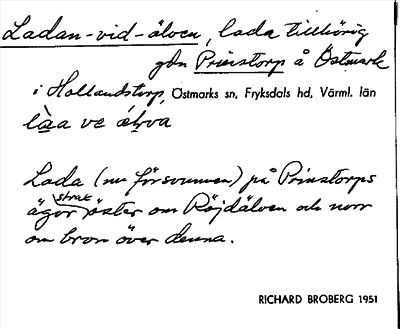 Ladan-vid-älven, lada tillhörig
gdn Prinstorp å Östmark
i Hollandstorp, Östmarks sn, Fryksdals hd, Värml. län
Lada (nu försvunnen) på Prinstorps
ägor strax öster om Röjdälven och norr
om bron över denna.
RICHARD BROBERG 1951